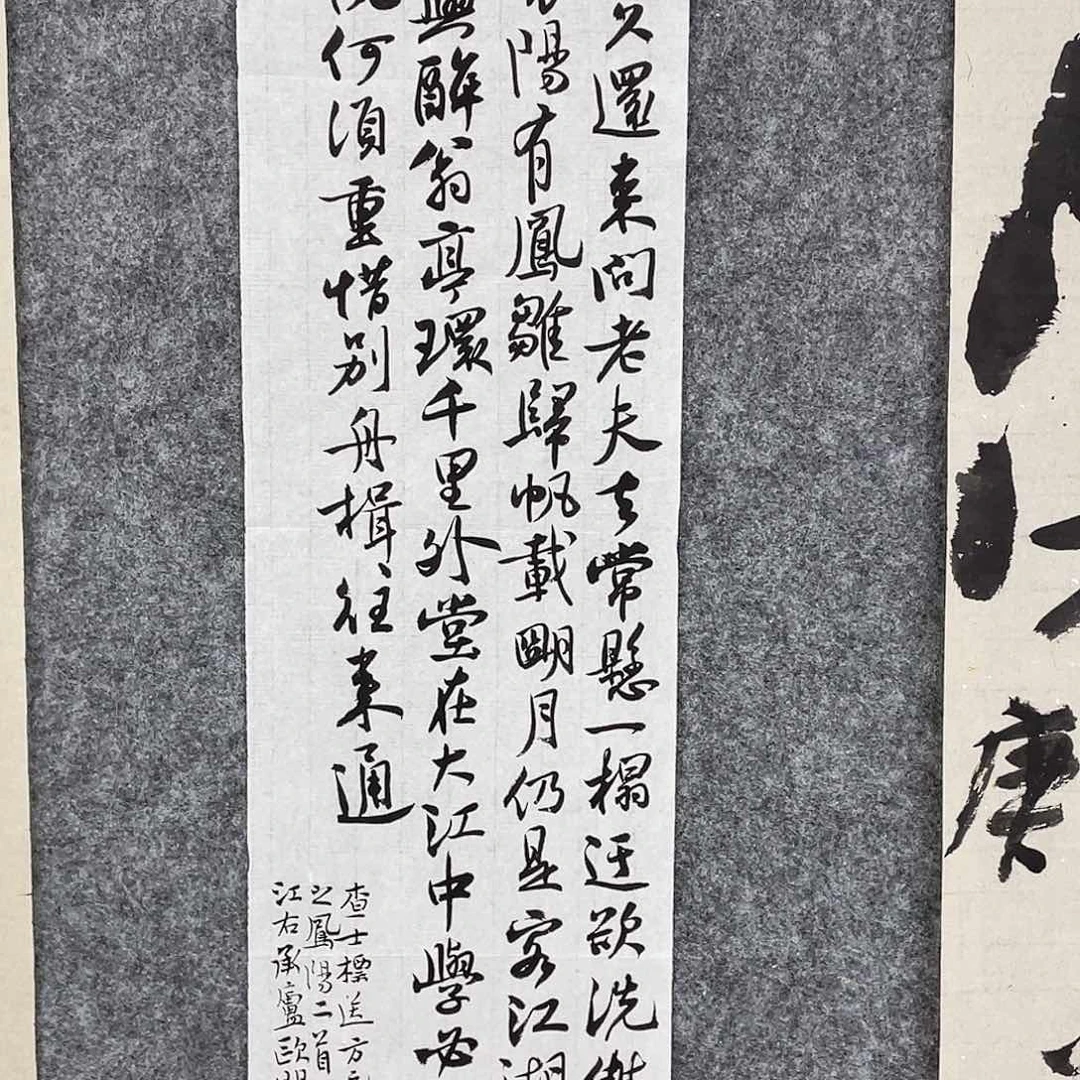 久還來問老夫去常懸一榻迂欲洗
陽有鳳雛歸帆載朙月仍是客江湖
與醉翁亭環千里外堂在大江中學必
何須重惜別舟楫往來通
查士標送方
之鳳陽二首
江右承廬歐陽
庚